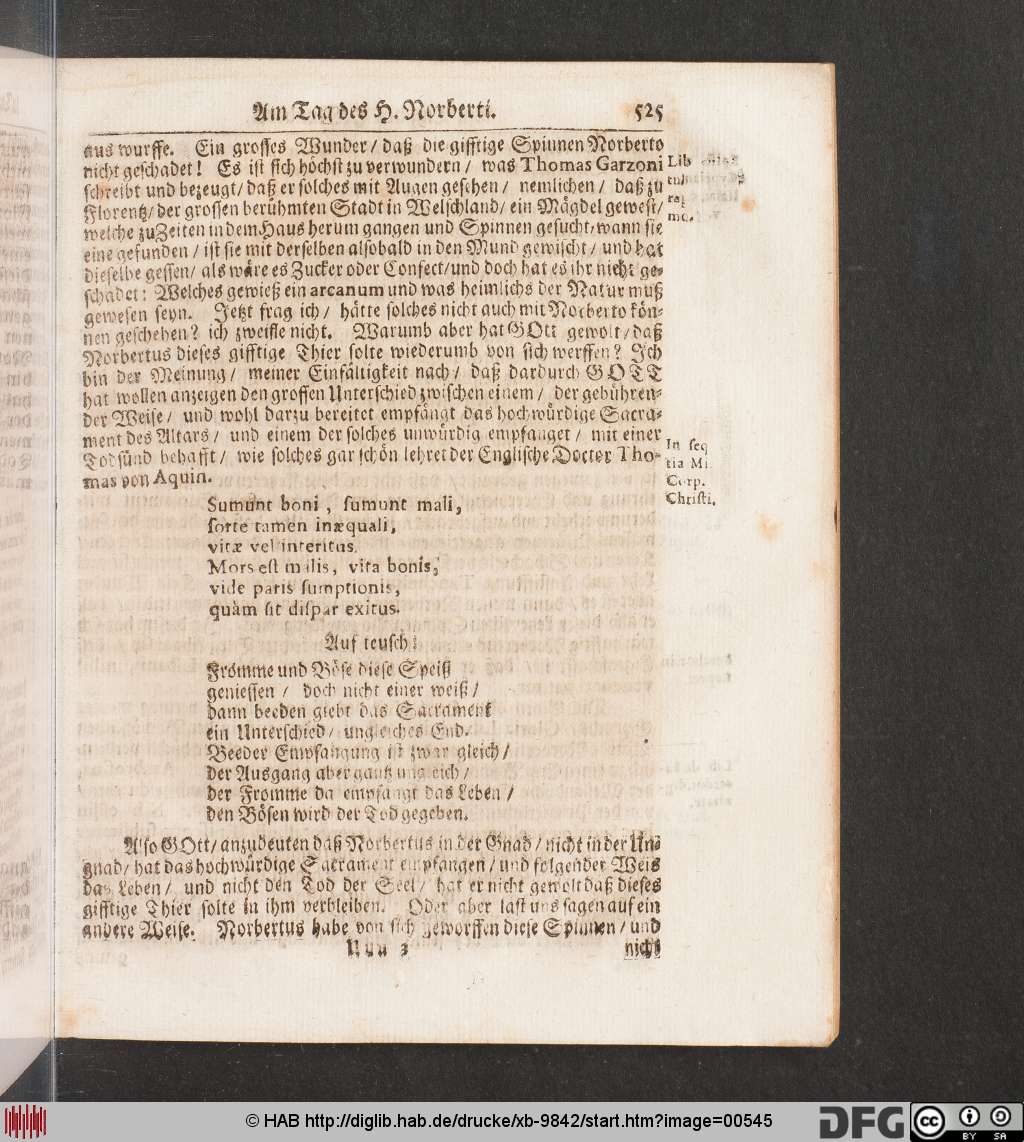 Am Tag des H. Norberti. 525
aus wurffe. Ein grosses Wunder / daß die gifftige Spinnen Norberto
nicht geschadet! Es ist sich höchst zu verwundern / was Thomas Garzoni
schreibt und bezeugt / daß er solches mit Augen gesehen / nemlichen / daß zu
Florentz / der grossen berühmten Stadt in Welschland / ein Mägdel gewest /
welche zu Zeiten in dem Haus herum gangen und Spinnen gesucht / wann sie
eine gefunden / ist sie mit derselben alsobald in den Mund gewischt / und hat
dieselbe gessen / als wäre es Zucker oder Confect / und doch hat es ihr nicht ge-
schadet: Welches gewieß ein arcanum und was heimlichs der Natur muß
gewesen seyn. Jetzt frag ich / hätte solches nicht auch mit Norberto kön-
nen geschehen? ich zweifle nicht. Warumb aber hat GOtt gewolt / daß
Norbertus dieses gifftige Thier solte wiederumb von sich werffen? Ich
bin der Meinung / meiner Einfältigkeit nach / daß dardurch GOTT
hat wollen anzeigen den grossen Unterschied zwischen einem / der gebühren-
der Weise / und wohl darzu bereitet empfängt das hochwürdige Sacra-
ment des Altars / und einem der solches unwürdig empfanget / mit einer
Todsünd behafft / wie solches gar schön lehret der Englische Doctor Tho-
mas von Aquin.
Lib
mo.
In seq
tia Mi.
Corp.
Christi.
Sumunt boni, sumunt mali,
sorte tamen inæquali,
vitæ vel interitus.
Mors est malis, vita bonis,
vide paris sumptionis,
quàm sit dispar exitus.
Auf teusch:
Fromme und Böse diese Speiß
geniessen / doch nicht einer weiß /
dann beeden giebt das Sacrament
ein Unterschied / ungleiches End.
Beeder Empfangung ist zwar gleich /
der Ausgang aber gantz ungleich /
der Fromme da empfangt das Leben /
den Bösen wird der Tod gegeben.
Also GOtt / anzudeuten daß Norbertus in der Gnad / nicht in der Un-
gnad / hat das hochwürdige Sacrament empfangen / und folgender Weis
das Leben / und nicht den Tod der Seel / hat er nicht gewolt daß dieses
gifftige Thier solte in ihm verbleiben. Oder aber last uns sagen auf ein
andere Weise. Norbertus habe von sich geworffen diese Spinnen / und
Uuu 3 nicht
© HAB http://diglib.hab.de/drucke/xb-9842/start.htm?image=00545
DFG cc BY SA